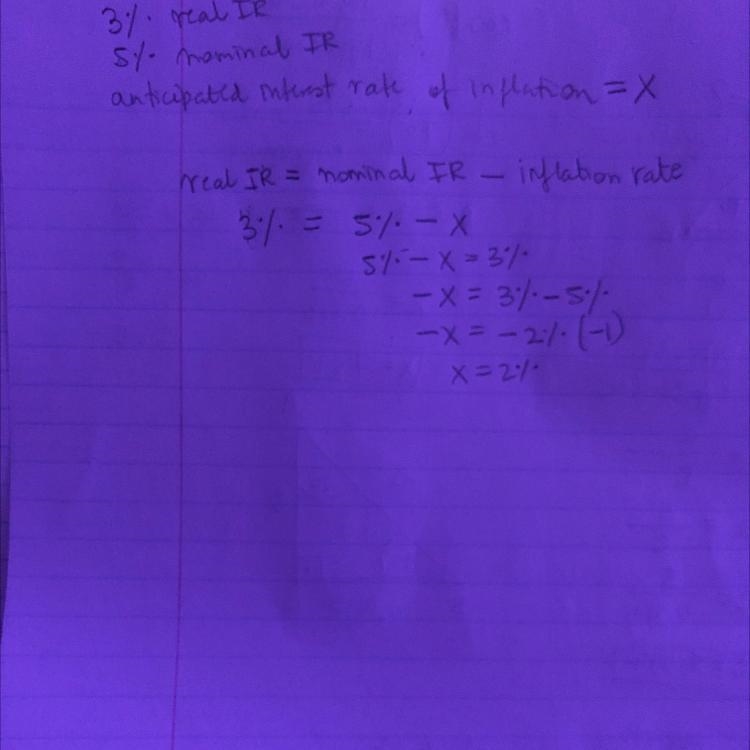 3% real IR
5% nominal IR
anticipated interest rate of inflation = X
real IR = nominal IR - inflation rate
3% = 5% - X
5% - X = 3%
-X = 3% - 5%
-X = -2% (-1)
X = 2%